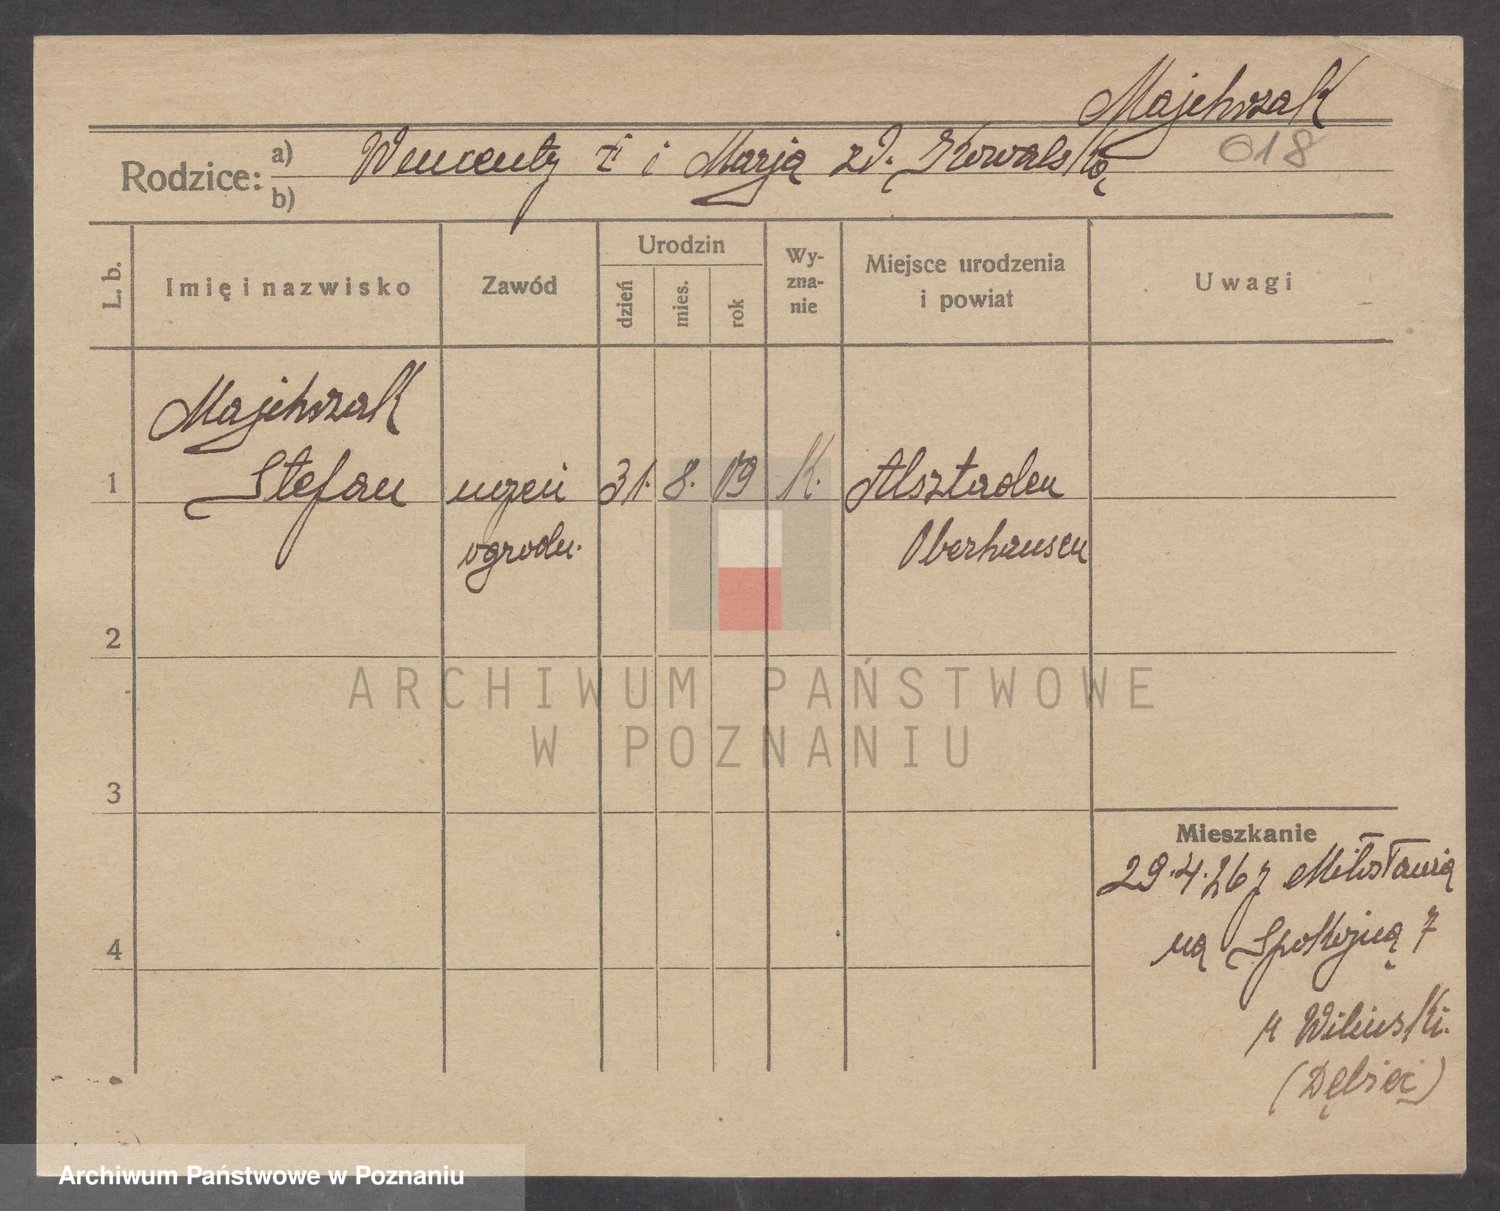 Majchrzak
018
Rodzice: a) Wincenty † i Marja zd. Kowalską
b)
L. b.
Imię i nazwisko
Zawód
Urodzin
dzień
mies.
rok
Wy-
zna-
nie
Miejsce urodzenia
i powiat
Uwagi
Majchrzak
1 Stefan uczeń 31. 8. 09 K. Alsztaden
ogrodn. Oberhausen
2
3
4
Mieszkanie
29.4.26 z Miłosławia
na Spokojną 7
u Wiliński.
(Dębiec)
ARCHIWUM PAŃSTWOWE
W POZNANIU
Archiwum Państwowe w Poznaniu